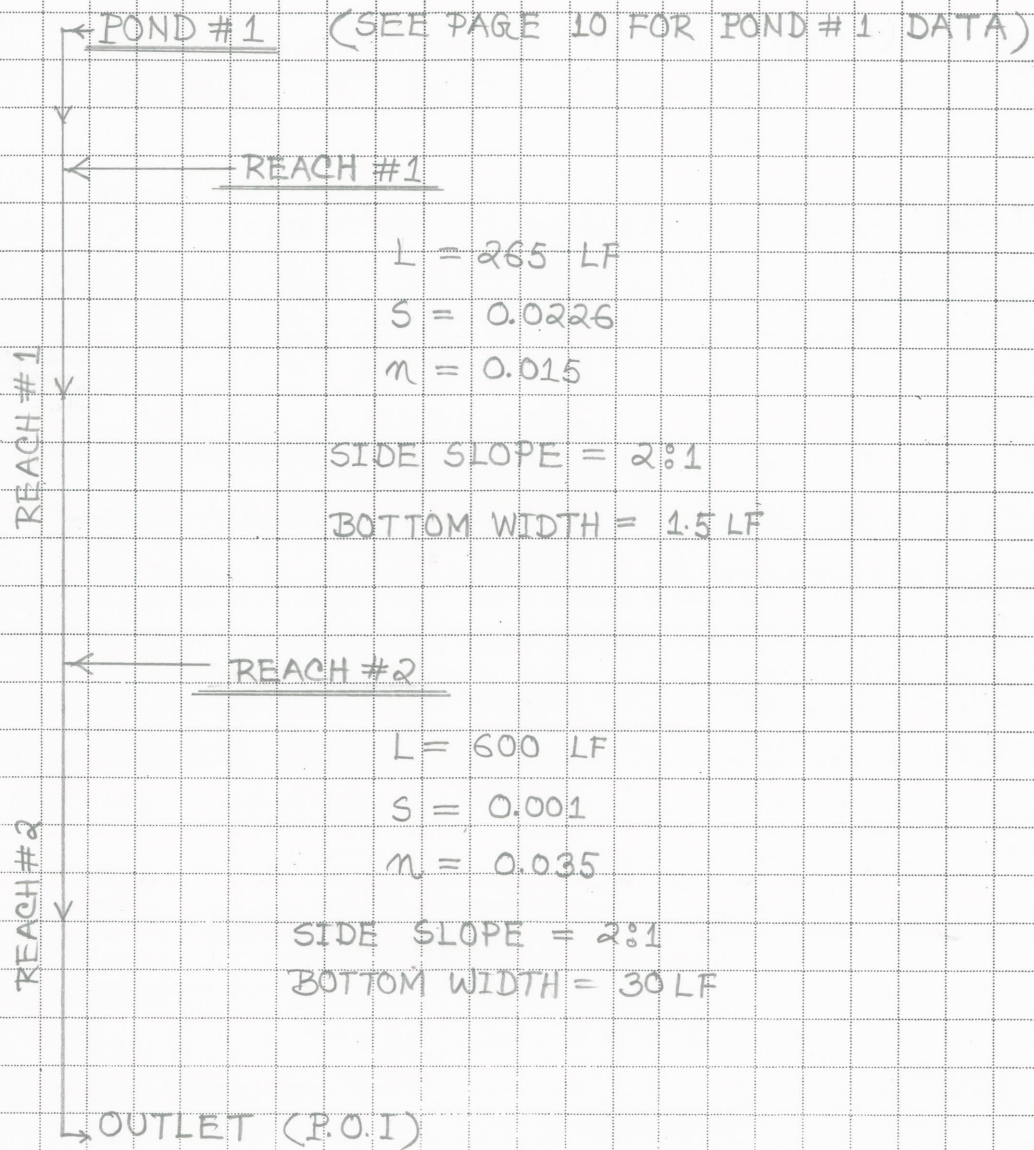 POND #1 (SEE PAGE 10 FOR POND #1 DATA)
REACH #1
L = 265 LF
S = 0.0226
n = 0.015
REACH #1
SIDE SLOPE = 2:1
BOTTOM WIDTH = 1.5 LF
REACH #2
L = 600 LF
S = 0.001
n = 0.035
REACH #2
SIDE SLOPE = 2:1
BOTTOM WIDTH = 30 LF
OUTLET (P.O.I)